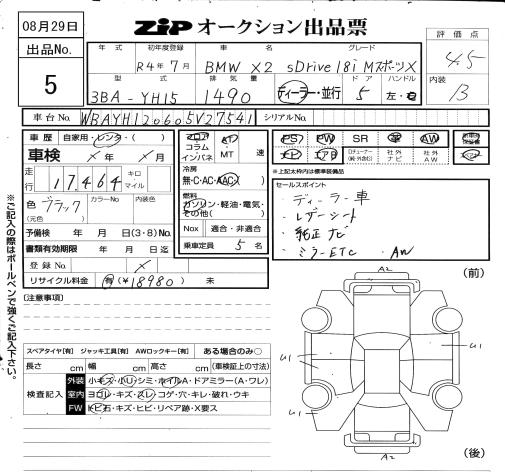 08月29日
出品No.
5
ZIP オークション出品票
評価点
4.5
内装
B
年式 初年度登録 車名 グレード
R4年7月 BMW X2 sDrive 18i MスポーツX
型式 排気量 ドア ハンドル
3BA-YH15 1490 ディーラー・並行 5 左・
車台No. WBAYH120605V27541 シリアルNo.
車歴 自家用・レンタ・( )
車検 年 月
走行 17,464 キロ マイル
色 ブラック カラーNo 内装色
(元色)
予備検 年 月 日(3・8)No.
書類有効期限 年 月 日迄
登録No.
リサイクル料金 有(¥18980) 未
フロア コラム インパネ
AT MT 速
冷房
無・C・AC・AAC
燃料
ガソリン・軽油・電気・その他( )
Nox 適合・非適合
乗車定員 5 名
PS PW SR 革 AW
ナビ エアB 社外ナビ 社外AW
※上記太枠内は標準装備品
セールスポイント
・ディーラー車
・レザーシート
・純正ナビ
・ミラーETC ・AW
※ご記入の際はボールペンで強くご記入下さい。
[注意事項]
スペアタイヤ[有] ジャッキ工具[有] AWロックキー[有] ある場合のみ○
長さ cm 幅 cm 高さ cm (車検証上の寸法)
検査記入
外装 小キズ・小リ・シミ・ホイルA・ドアミラー(A・ワレ)
室内 ヨゴレ・キズ・スレ・コゲ・穴・キレ・破れ・ウキ
FW トビ石・キズ・ヒビ・リペア跡・X要ス
(前)
A2
U1
U1
U1
A2
(後)